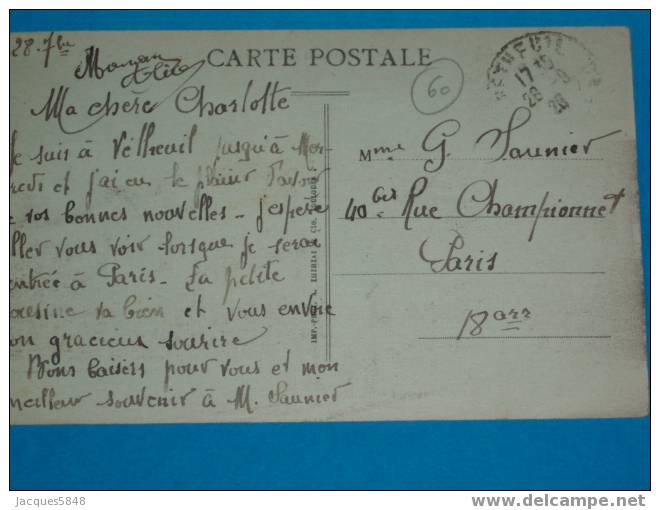 28. 7bre
Maman
CARTE POSTALE
60
Ma chère Charlotte
suis à Vétheuil jusqu'à Mer-
credi et j'ai eu le plaisir d'avoir
vos bonnes nouvelles - j'espère
aller vous voir lorsque je serai
rentrée à Paris. La petite
va bien et vous envoie
son gracieux sourire
Bons baisers pour vous et mon
meilleur souvenir à M. Saunier
Mme G. Saunier
40 bis Rue Championnet
Paris
18 arr
17 15
28
28
Jacques5848
delcampe.net